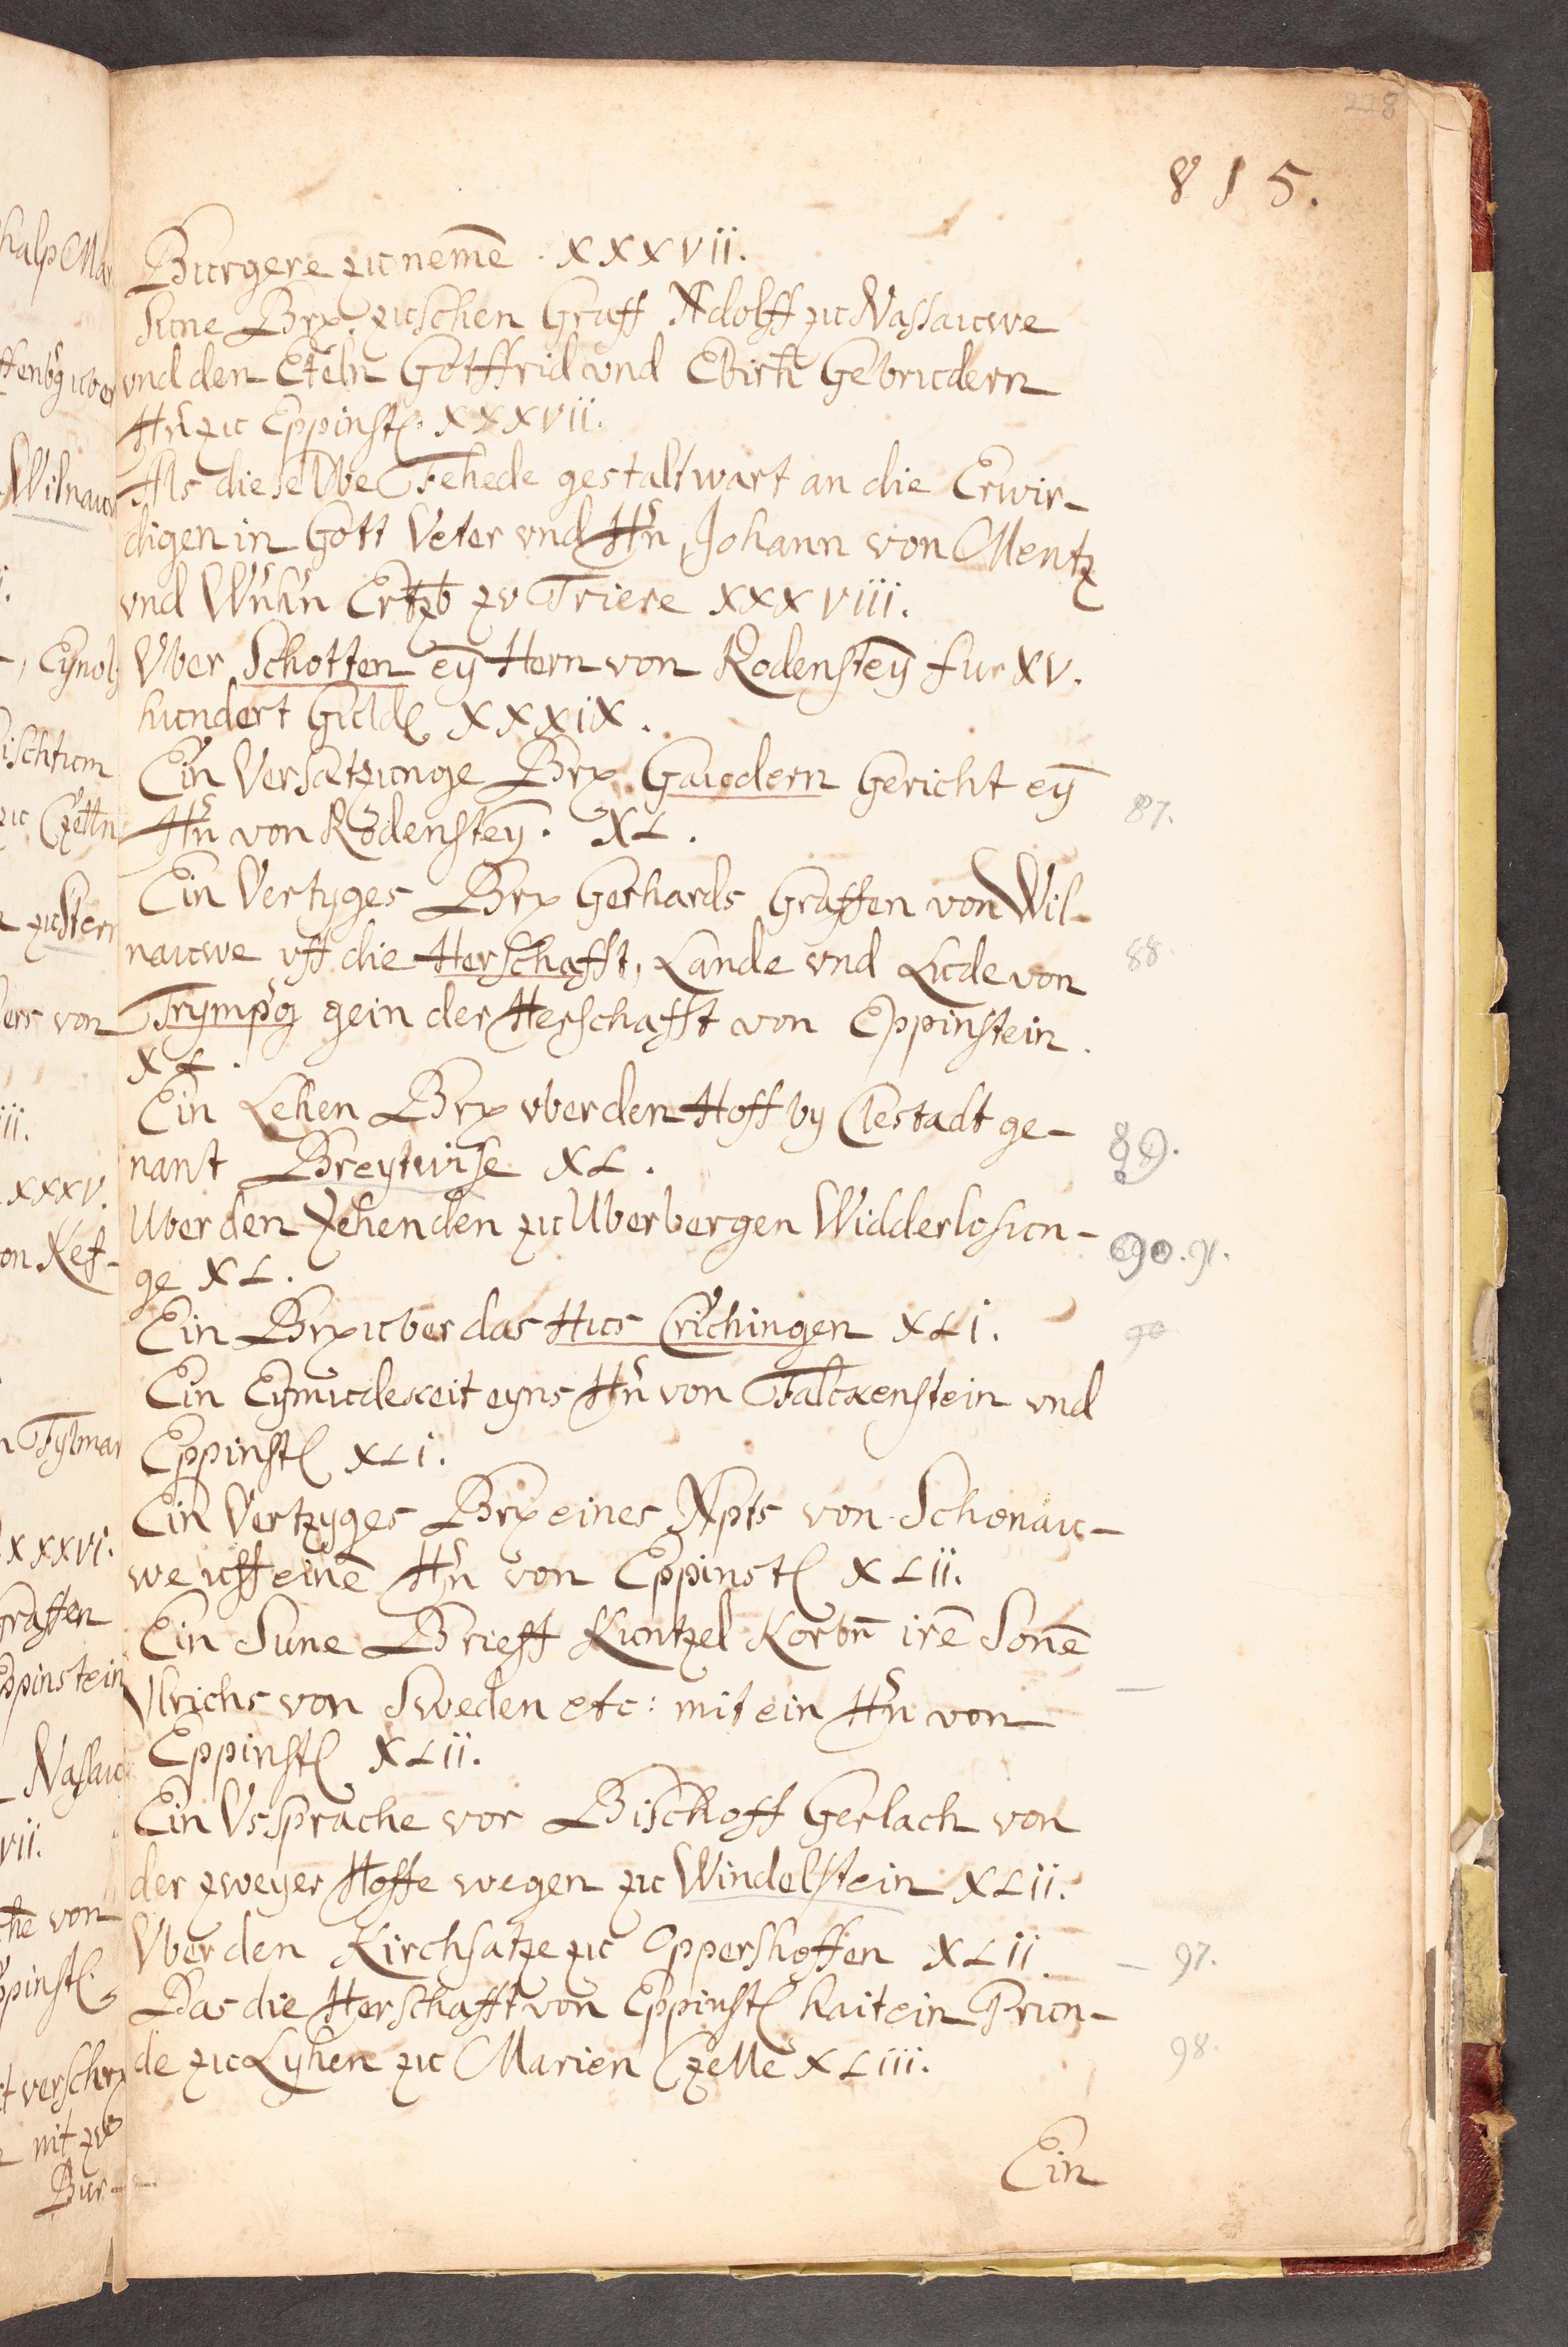 228
815.
Burgere zu nemē. XXXVII.
Sune Brx. zuschen Graff Adolff zu Nassauwe
vnd den Eteln Gotffrid vnd Ebirh Gebrudern
Hn̄ zu Eppinst. XXXVII.
Als dieselbe Fehede gestalt wart an die Erwir-
digen in Gott Veter vnd Hn̄, Johann von Mentz
vnd Wn̄hn̄ Ertzb zv Triere XXXVIII.
Vber Schotten eȳ Hern von Rodensteȳ fur XV.
hundert Guld XXXIX.
Ein Versatzunge Brx Gaudern Gericht eȳ
87.
Hn̄ von Rodensteȳ. XL.
Ein Vertyges Brx Gerhards Graffen von Wil-
nauwe vff die Herschafft, Lande vnd Lude von
88.
Trympg gein der Herschafft von Eppinstein.
XL.
Ein Lehen Brx vber den Hoff by Clestadt ge-
89.
nant Breytwise XL.
Uber den Zehenden zu Uberbergen Widderlosun-
90. 91.
ge XL.
Ein Brx uber das Hus Crichingen XLI.
90
Ein Eymudekeit eyns Hn̄ von Falckenstein vnd
Eppinst XLI.
Ein Vertzyges Brx eines Apts von Schonau-
we uff einē Hn̄ von Eppinst XLII.
Ein Sune Brieff Kuntzel Korbn̄ irē Sonē
Vlrichs von Sweden etc: mit ein Hn̄ von
Eppinst XLII.
Ein Vssprache vor Bischoff Gerlach von
der zweyer Hoffe wegen zu Windelstein XLII.
Vber den Kirchsatze zu Oppershoffen XLII
97.
Das die Herschafft von Eppinst hait ein Prun-
de zu Lyhen zu Marien Czelle XLIII.
98.
Ein